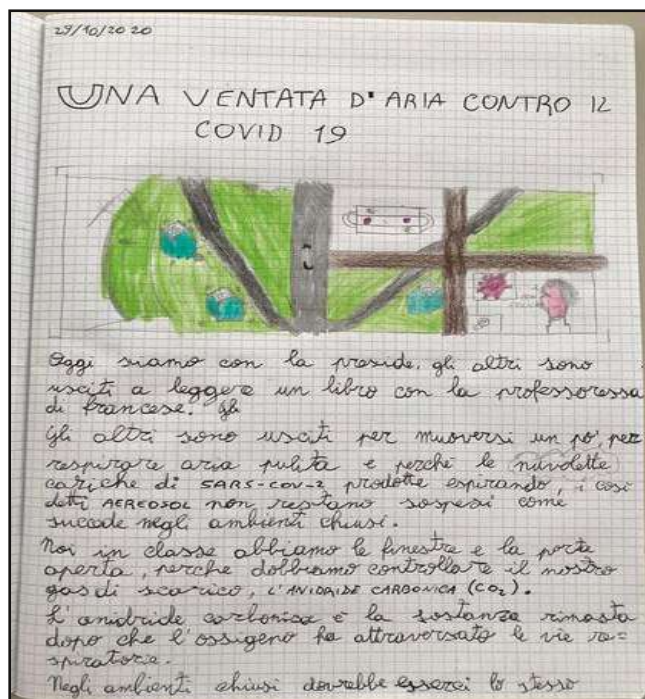 29/10/2020
UNA VENTATA D'ARIA CONTRO IL
COVID 19
Oggi siamo con la preside, gli altri sono
usciti a leggere un libro con la professoressa
di francese. Gli
Gli altri sono usciti per muoversi un po', per
respirare aria pulita e perché le nuvolette
cariche di SARS-COV-2 prodotte espirando, i così
detti AEREOSOL non restano sospesi come
succede negli ambienti chiusi.
Noi in classe abbiamo le finestre e la porta
aperta, perché dobbiamo controllare il nostro
gas di scarico, L'ANIDRIDE CARBONICA (CO₂).
L'anidride carbonica è la sostanza rimasta
dopo che l'ossigeno ha attraversato le vie re=
spiratorie.
Negli ambienti chiusi dovrebbe esserci lo stesso